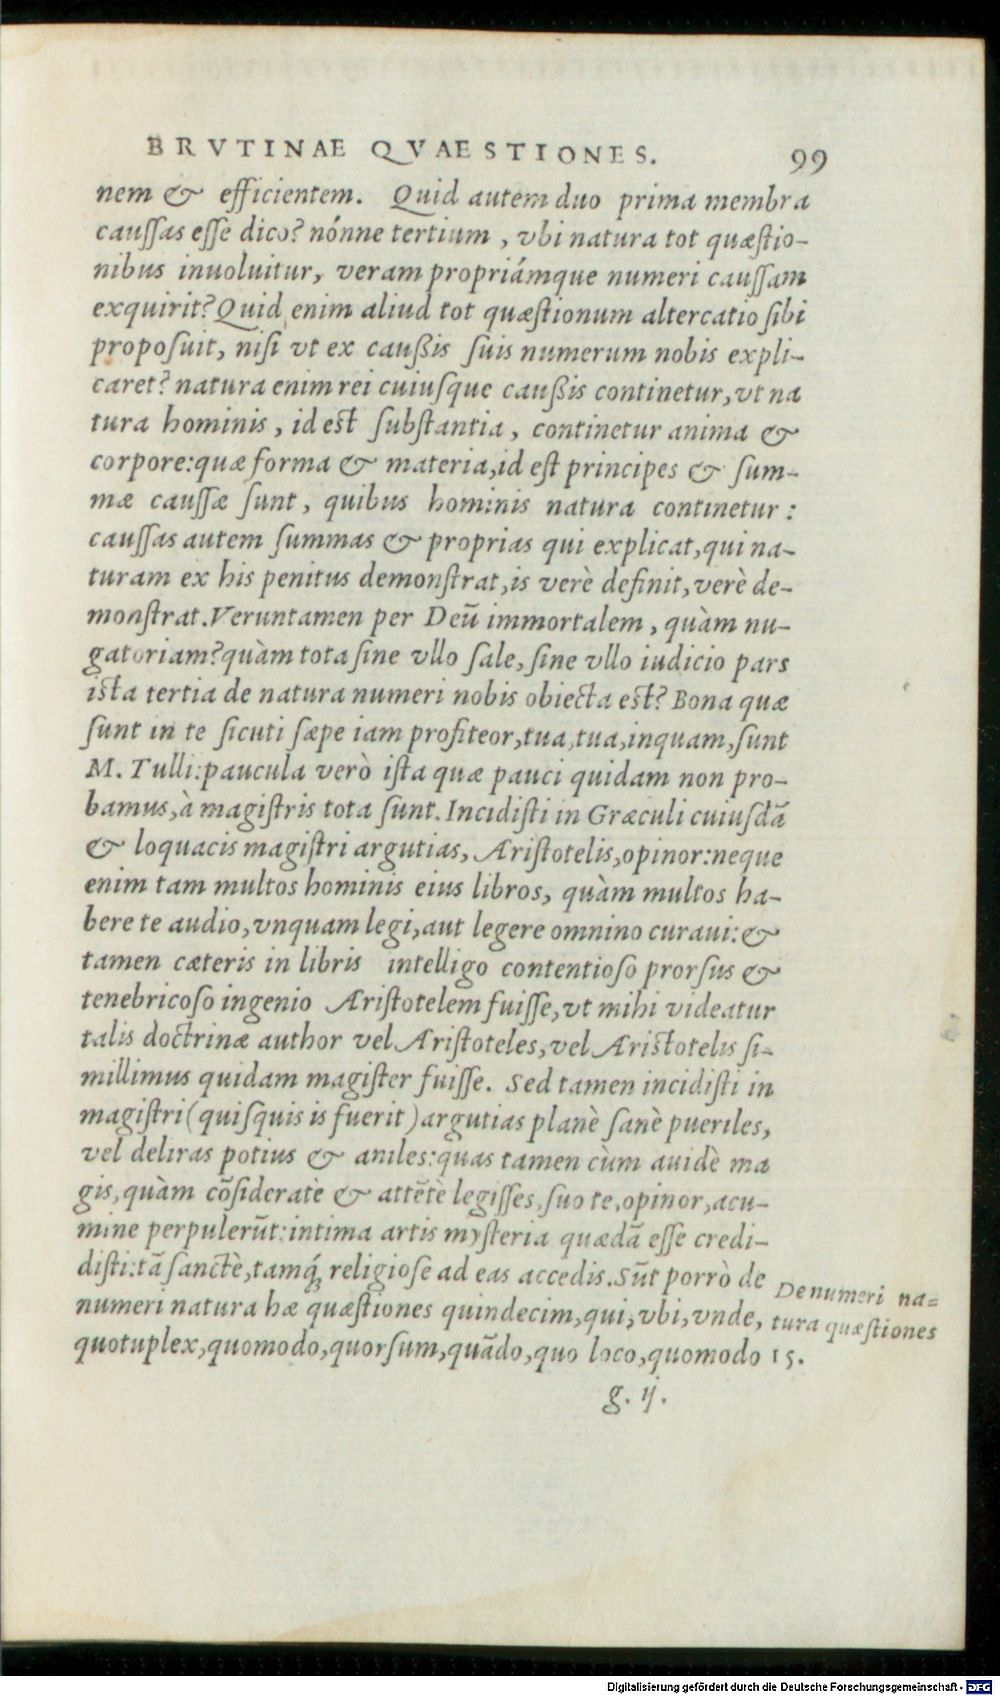 BRVTINAE QVAESTIONES. 99
nem & efficientem. Quid autem duo prima membra
caussas esse dico? nónne tertium, vbi natura tot quæstio-
nibus inuoluitur, veram propriámque numeri caussam
exquirit? Quid enim aliud tot quæstionum altercatio sibi
proposuit, nisi vt ex caußis suis numerum nobis expli-
caret? natura enim rei cuiusque caußis continetur, vt na
tura hominis, id est substantia, continetur anima &
corpore: quæ forma & materia, id est principes & sum-
mæ caussæ sunt, quibus hominis natura continetur:
caussas autem summas & proprias qui explicat, qui na-
turam ex his penitus demonstrat, is verè definit, verè de-
monstrat. Veruntamen per Deū immortalem, quàm nu-
gatoriam? quàm tota sine vllo sale, sine vllo iudicio pars
ista tertia de natura numeri nobis obiecta est? Bona quæ
sunt in te sicuti sæpe iam profiteor, tua, tua, inquam, sunt
M. Tulli: paucula verò ista quæ pauci quidam non pro-
bamus, à magistris tota sunt. Incidisti in Græculi cuiusdā
& loquacis magistri argutias, Aristotelis, opinor: neque
enim tam multos hominis eius libros, quàm multos ha-
bere te audio, vnquam legi, aut legere omnino curaui: &
tamen cæteris in libris intelligo contentioso prorsus &
tenebricoso ingenio Aristotelem fuisse, vt mihi videatur
talis doctrinæ author vel Aristoteles, vel Aristotelis si-
millimus quidam magister fuisse. Sed tamen incidisti in
magistri (quisquis is fuerit) argutias planè sanè pueriles,
vel deliras potius & aniles: quas tamen cùm auidè ma
gis, quàm cōsideratè & attētè legisses, suo te, opinor, acu-
mine perpulerūt: intima artis mysteria quædā esse credi-
disti: tā sanctè, tamq́ religiose ad eas accedis. Sūt porrò de
numeri natura hæ quæstiones quindecim, qui, vbi, vnde,
quotuplex, quomodo, quorsum, quādo, quo loco, quomodo
De numeri na=
tura quæstiones
15.
g. ij.
Digitalisierung gefördert durch die Deutsche Forschungsgemeinschaft - DFG